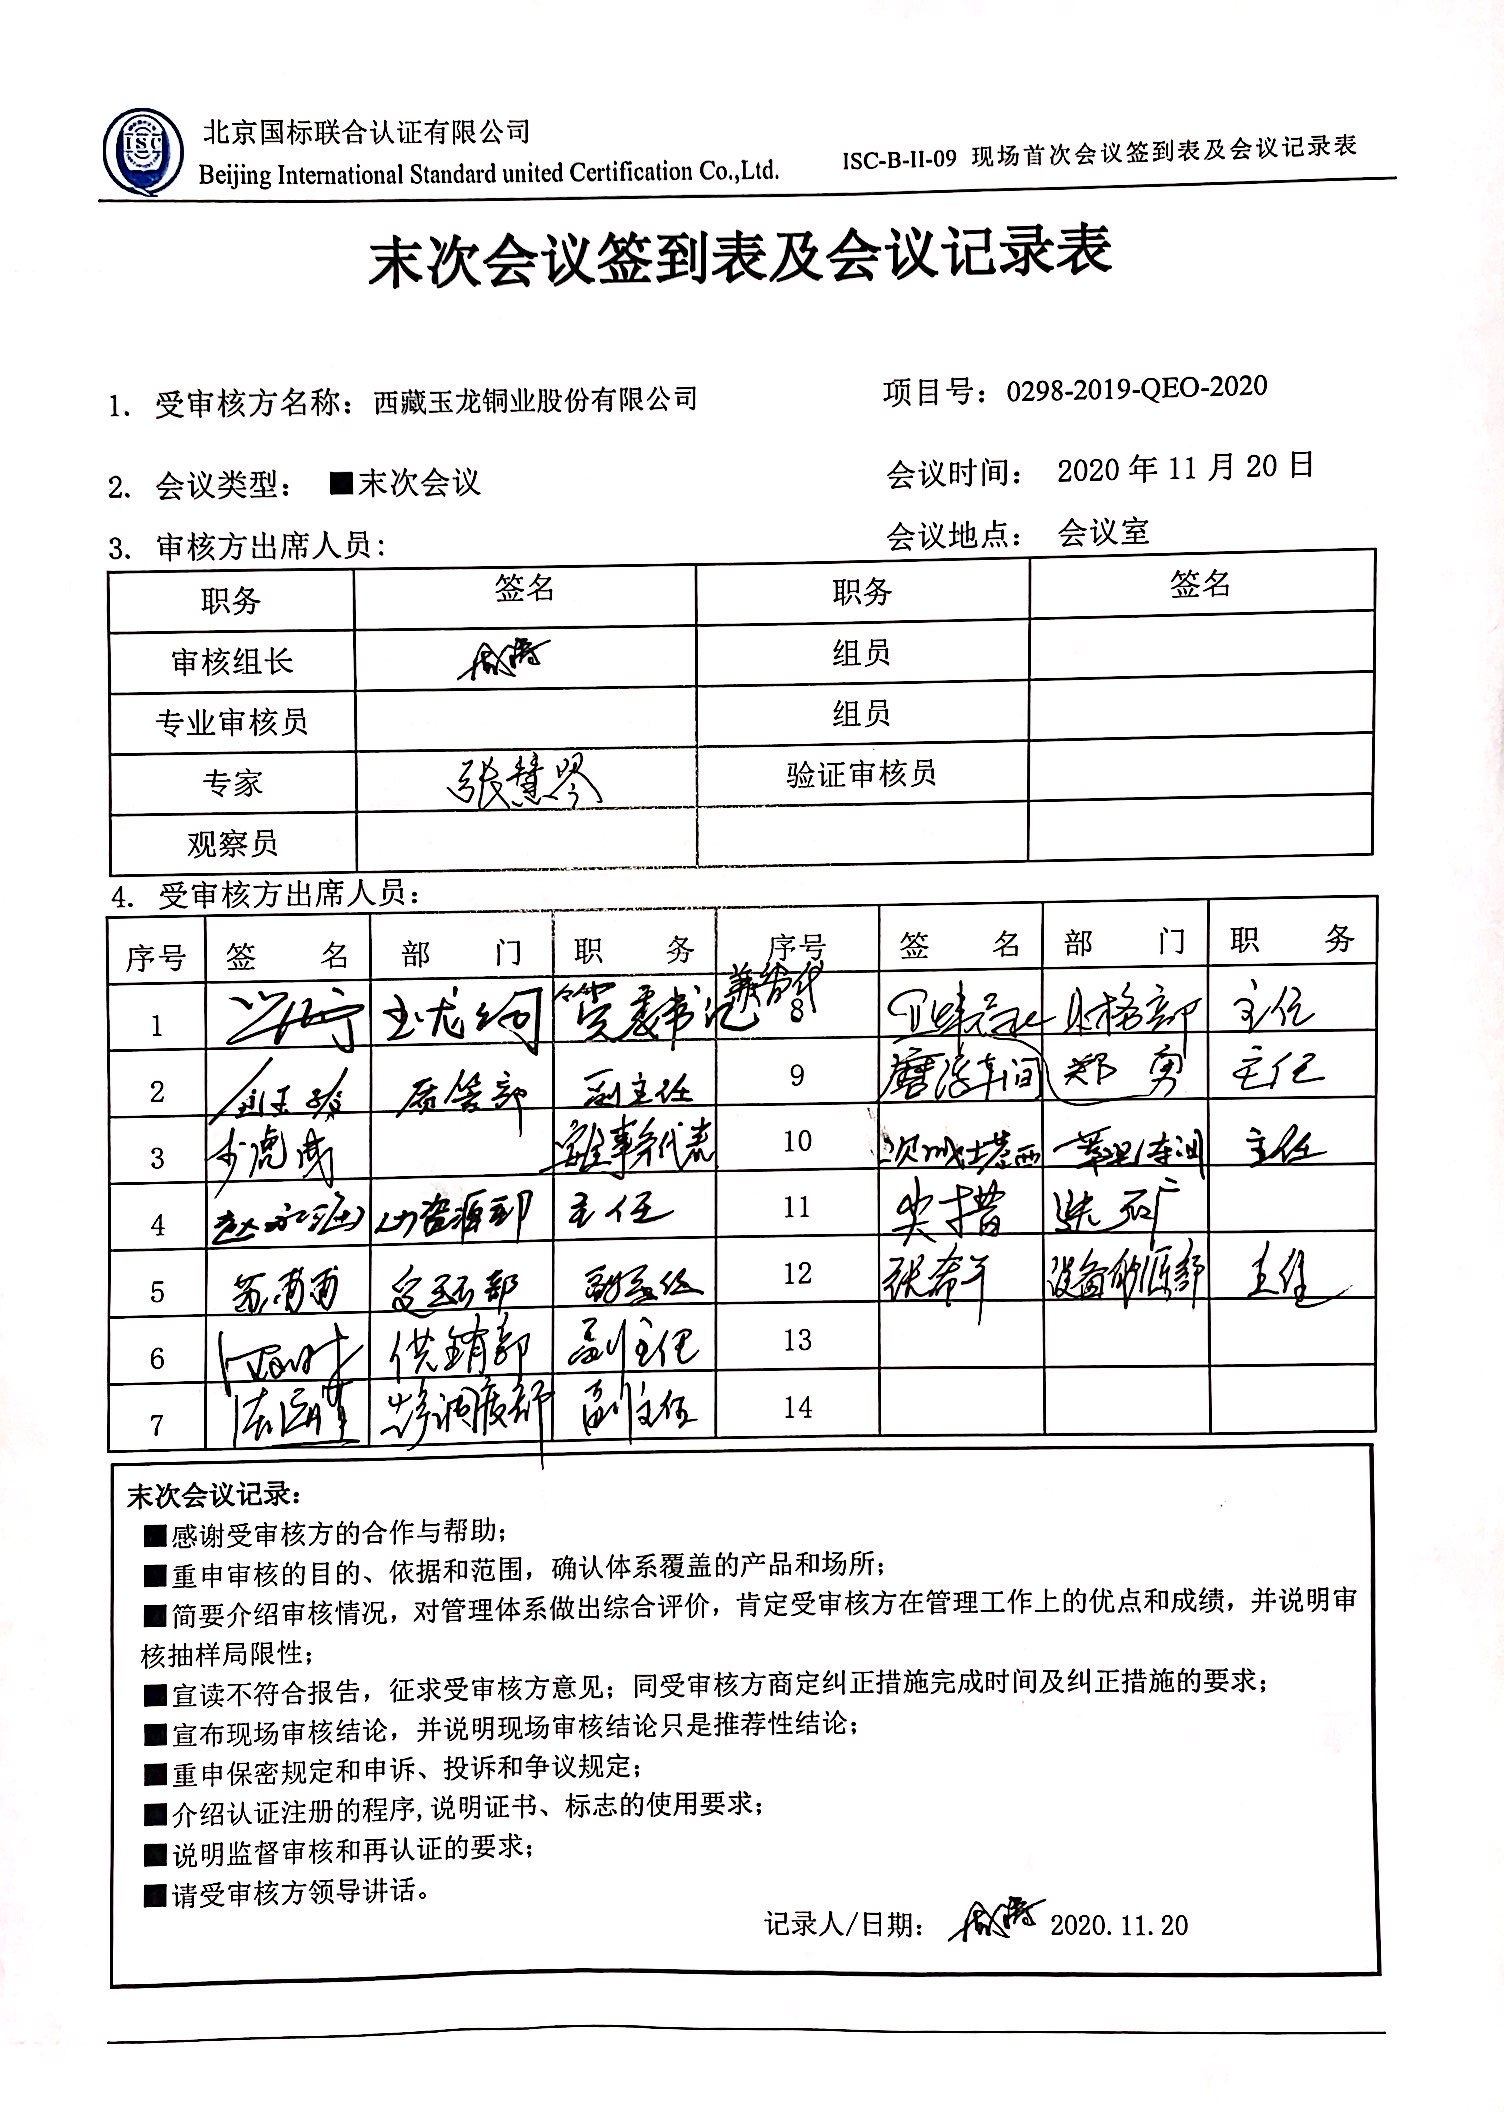 ISC
北京国标联合认证有限公司
Beijing International Standard united Certification Co.,Ltd.
ISC-B-II-09 现场首次会议签到表及会议记录表
末次会议签到表及会议记录表
1. 受审核方名称：西藏玉龙铜业股份有限公司 项目号：0298-2019-QEO-2020
2. 会议类型： ■末次会议 会议时间： 2020 年 11 月 20 日
3. 审核方出席人员： 会议地点： 会议室
职务 签名 职务 签名
审核组长 组员
专业审核员 组员
专家 张慧琴 验证审核员
观察员
4. 受审核方出席人员：
序号 签 名 部 门 职 务 序号 签 名 部 门 职 务
1 玉龙公司 党委书记 8 主任
2 质管部 副主任 9 磨浮车间 郑勇 主任
3 代表 10 主任
4 主任 11 尖措 选矿
5 副主任 12 张希年 设备能源部 主任
6 供销部 副主任 13
7 调度部 副主任 14
末次会议记录：
■感谢受审核方的合作与帮助；
■重申审核的目的、依据和范围，确认体系覆盖的产品和场所；
■简要介绍审核情况，对管理体系做出综合评价，肯定受审核方在管理工作上的优点和成绩，并说明审
核抽样局限性；
■宣读不符合报告，征求受审核方意见；同受审核方商定纠正措施完成时间及纠正措施的要求；
■宣布现场审核结论，并说明现场审核结论只是推荐性结论；
■重申保密规定和申诉、投诉和争议规定；
■介绍认证注册的程序,说明证书、标志的使用要求；
■说明监督审核和再认证的要求；
■请受审核方领导讲话。
记录人/日期： 2020.11.20